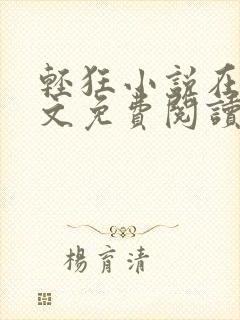 輕狂小說在
文免費閱讀
楊育清